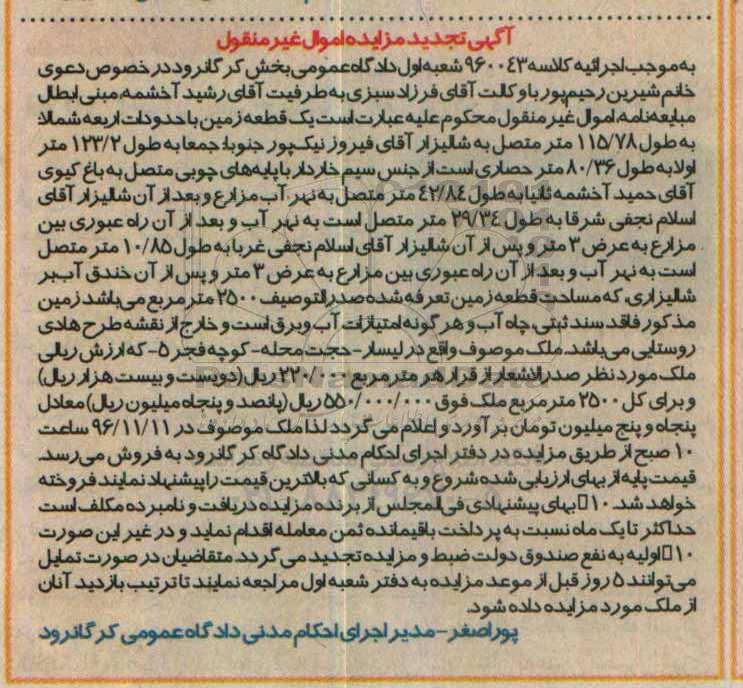 آگهی تجدید مزایده اموال غیر منقول
به موجب اجرائیه کلاسه ۹۶۰۰۴۳ شعبه اول دادگاه عمومی بخش کرگانرود در خصوص دعوی
خانم شیرین رحیم‌پور با وکالت آقای فرزاد سبزی به طرفیت آقای رشید آخشمه، مبنی ابطال
مبایعه‌نامه، اموال غیر منقول محکوم علیه عبارت است یک قطعه زمین با حدودات اربعه شمالا:
به طول ۱۱۵/۷۸ متر متصل به شالیزار آقای فیروز نیک‌پور جنوبا: جمعا به طول ۱۲۳/۲ متر
اولا به طول ۸۰/۳۶ متر حصاری است از جنس سیم خاردار با پایه‌های چوبی متصل به باغ کیوی
آقای حمید آخشمه ثانیا به طول ۴۲/۸۴ متر متصل به نهر آب مزارع و بعد از آن شالیزار آقای
اسلام نجفی شرقا به طول ۲۹/۳۴ متر متصل است به نهر آب و بعد از آن راه عبوری بین
مزارع به عرض ۳ متر و پس از آن شالیزار آقای اسلام نجفی غربا به طول ۱۰/۸۵ متر متصل
است به نهر آب و بعد از آن راه عبوری بین مزارع به عرض ۳ متر و پس از آن خندق آب‌بر
شالیزاری، که مساحت قطعه زمین تعرفه شده صدرالتوصیف ۲۵۰۰ متر مربع می‌باشد زمین
مذکور فاقد سند ثبتی، چاه آب و هر گونه امتیازات آب و برق است و خارج از نقشه طرح هادی
روستایی می‌باشد. ملک موصوف واقع در لیسار- حجت محله- کوچه فجر ۵- که ارزش ریالی
ملک مورد نظر صدرالاشعار از قرار هر متر مربع ۲۲۰/۰۰۰ ریال (دویست و بیست هزار ریال)
و برای کل ۲۵۰۰ متر مربع ملک فوق ۵۵۰/۰۰۰/۰۰۰ ریال (پانصد و پنجاه میلیون ریال) معادل
پنجاه و پنج میلیون تومان برآورد و اعلام می‌گردد لذا ملک موصوف در ۹۶/۱۱/۱۱ ساعت
۱۰ صبح از طریق مزایده در دفتر اجرای احکام مدنی دادگاه کرگانرود به فروش می‌رسد.
قیمت پایه از بهای ارزیابی شده شروع و به کسانی که بالاترین قیمت را پیشنهاد نمایند فروخته
خواهد شد. ۱۰□ بهای پیشنهادی فی‌المجلس از برنده مزایده دریافت و نامبرده مکلف است
حداکثر تا یک ماه نسبت به پرداخت باقیمانده ثمن معامله اقدام نماید و در غیر این صورت
۱۰□ اولیه به نفع صندوق دولت ضبط و مزایده تجدید می‌گردد. متقاضیان در صورت تمایل
می‌توانند ۵ روز قبل از موعد مزایده به دفتر شعبه اول مراجعه نمایند تا ترتیب بازدید آنان
از ملک مورد مزایده داده شود.
پوراصغر - مدیر اجرای احکام مدنی دادگاه عمومی کرگانرود